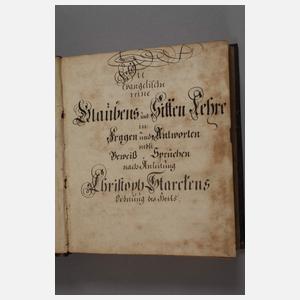 Die
Evangelische
reine
Glaubens und Sitten Lehre
in
Fragen und Antworten
nebst
Beweiß Sprüchen
nach Anleitung
Christoph Starckens
Ordnung des Heils.